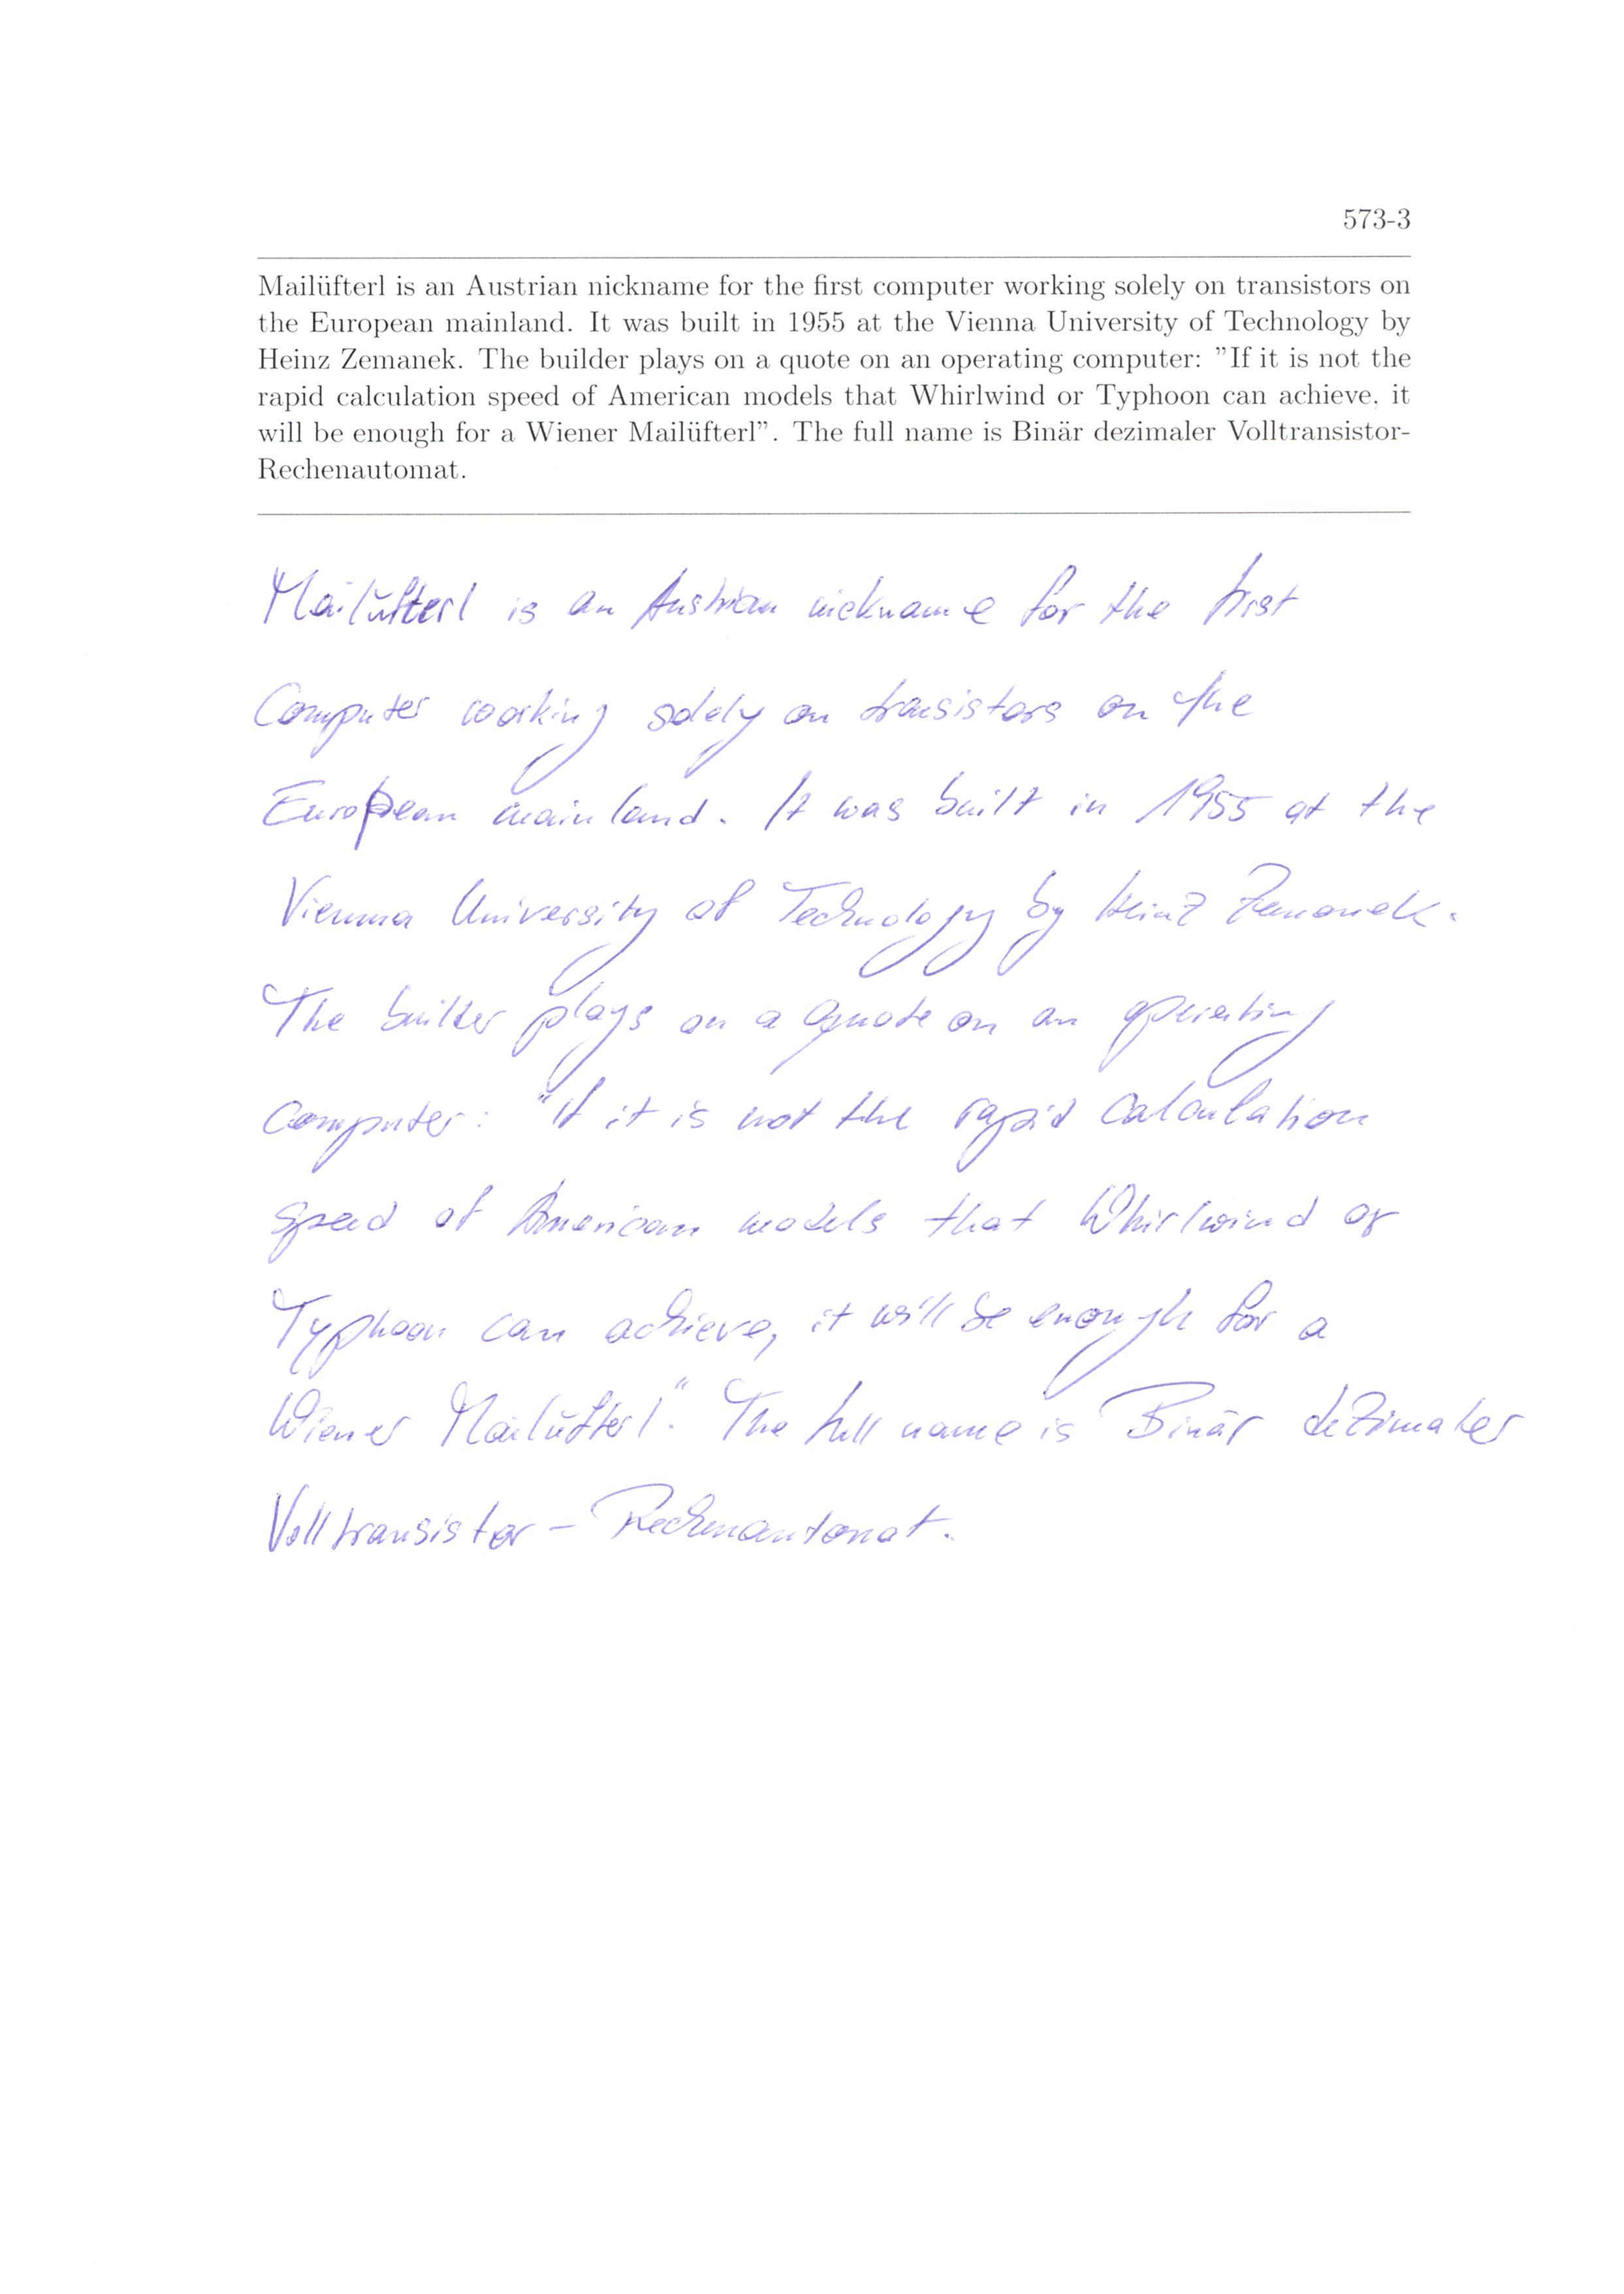 573-3
Mailüfterl is an Austrian nickname for the first computer working solely on transistors on
the European mainland. It was built in 1955 at the Vienna University of Technology by
Heinz Zemanek. The builder plays on a quote on an operating computer: "If it is not the
rapid calculation speed of American models that Whirlwind or Typhoon can achieve, it
will be enough for a Wiener Mailüfterl". The full name is Binär dezimaler Volltransistor-
Rechenautomat.
Mailüfterl is an Austrian nickname for the first
Computer working solely on transistors on the
European mainland. It was built in 1955 at the
Vienna University of Technology by Heinz Zemanek.
The builder plays on a quote on an operating
Computer: "If it is not the rapid calculation
speed of American models that Whirlwind or
Typhoon can achieve, it will be enough for a
Wiener Mailüfterl". The full name is Binär dezimaler
Volltransistor - Rechenautomat.